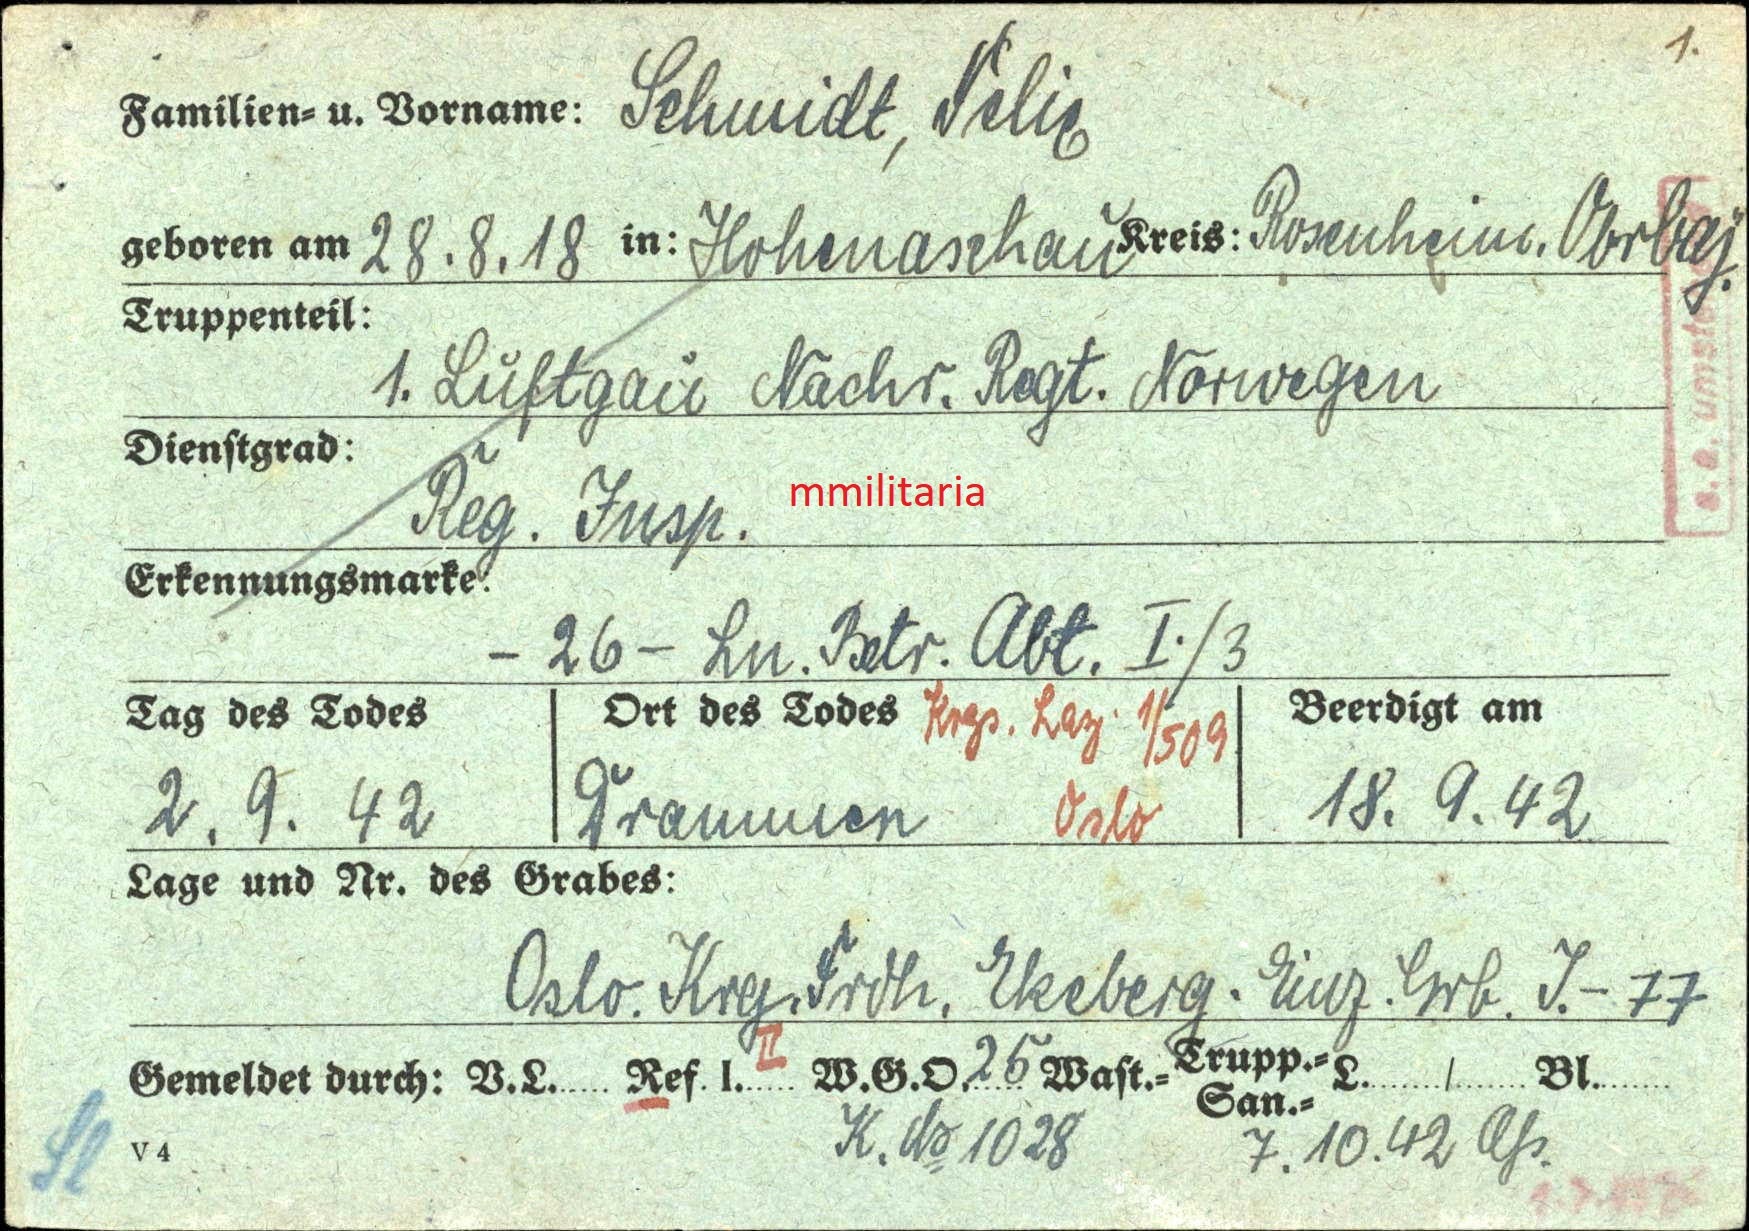 1.
Familien- u. Vorname: Schmidt, Felix
geboren am 28.8.18 in: Hohenaschau Kreis: Rosenheim. Obrbay.
Truppenteil:
1. Luftgau Nachr. Regt. Norwegen
Dienstgrad:
Reg. Insp.
mmilitaria
Erkennungsmarke:
- 26 - Ln. Betr. Abt. I./3
Tag des Todes Ort des Todes Krgs. Laz. 1/509 Beerdigt am
2. 9. 42 Drammen Oslo 18. 9. 42
Lage und Nr. des Grabes:
Oslo. Krg. Frdh. Ekeberg. Einz. Grb. I. - 77
II
Gemeldet durch: V.L...... Ref. I...... W.G.O. 26 Wast.= Trupp.= San.= L......../....... Bl.........
V 4 K. 1028 7.10.42
s. a. umste